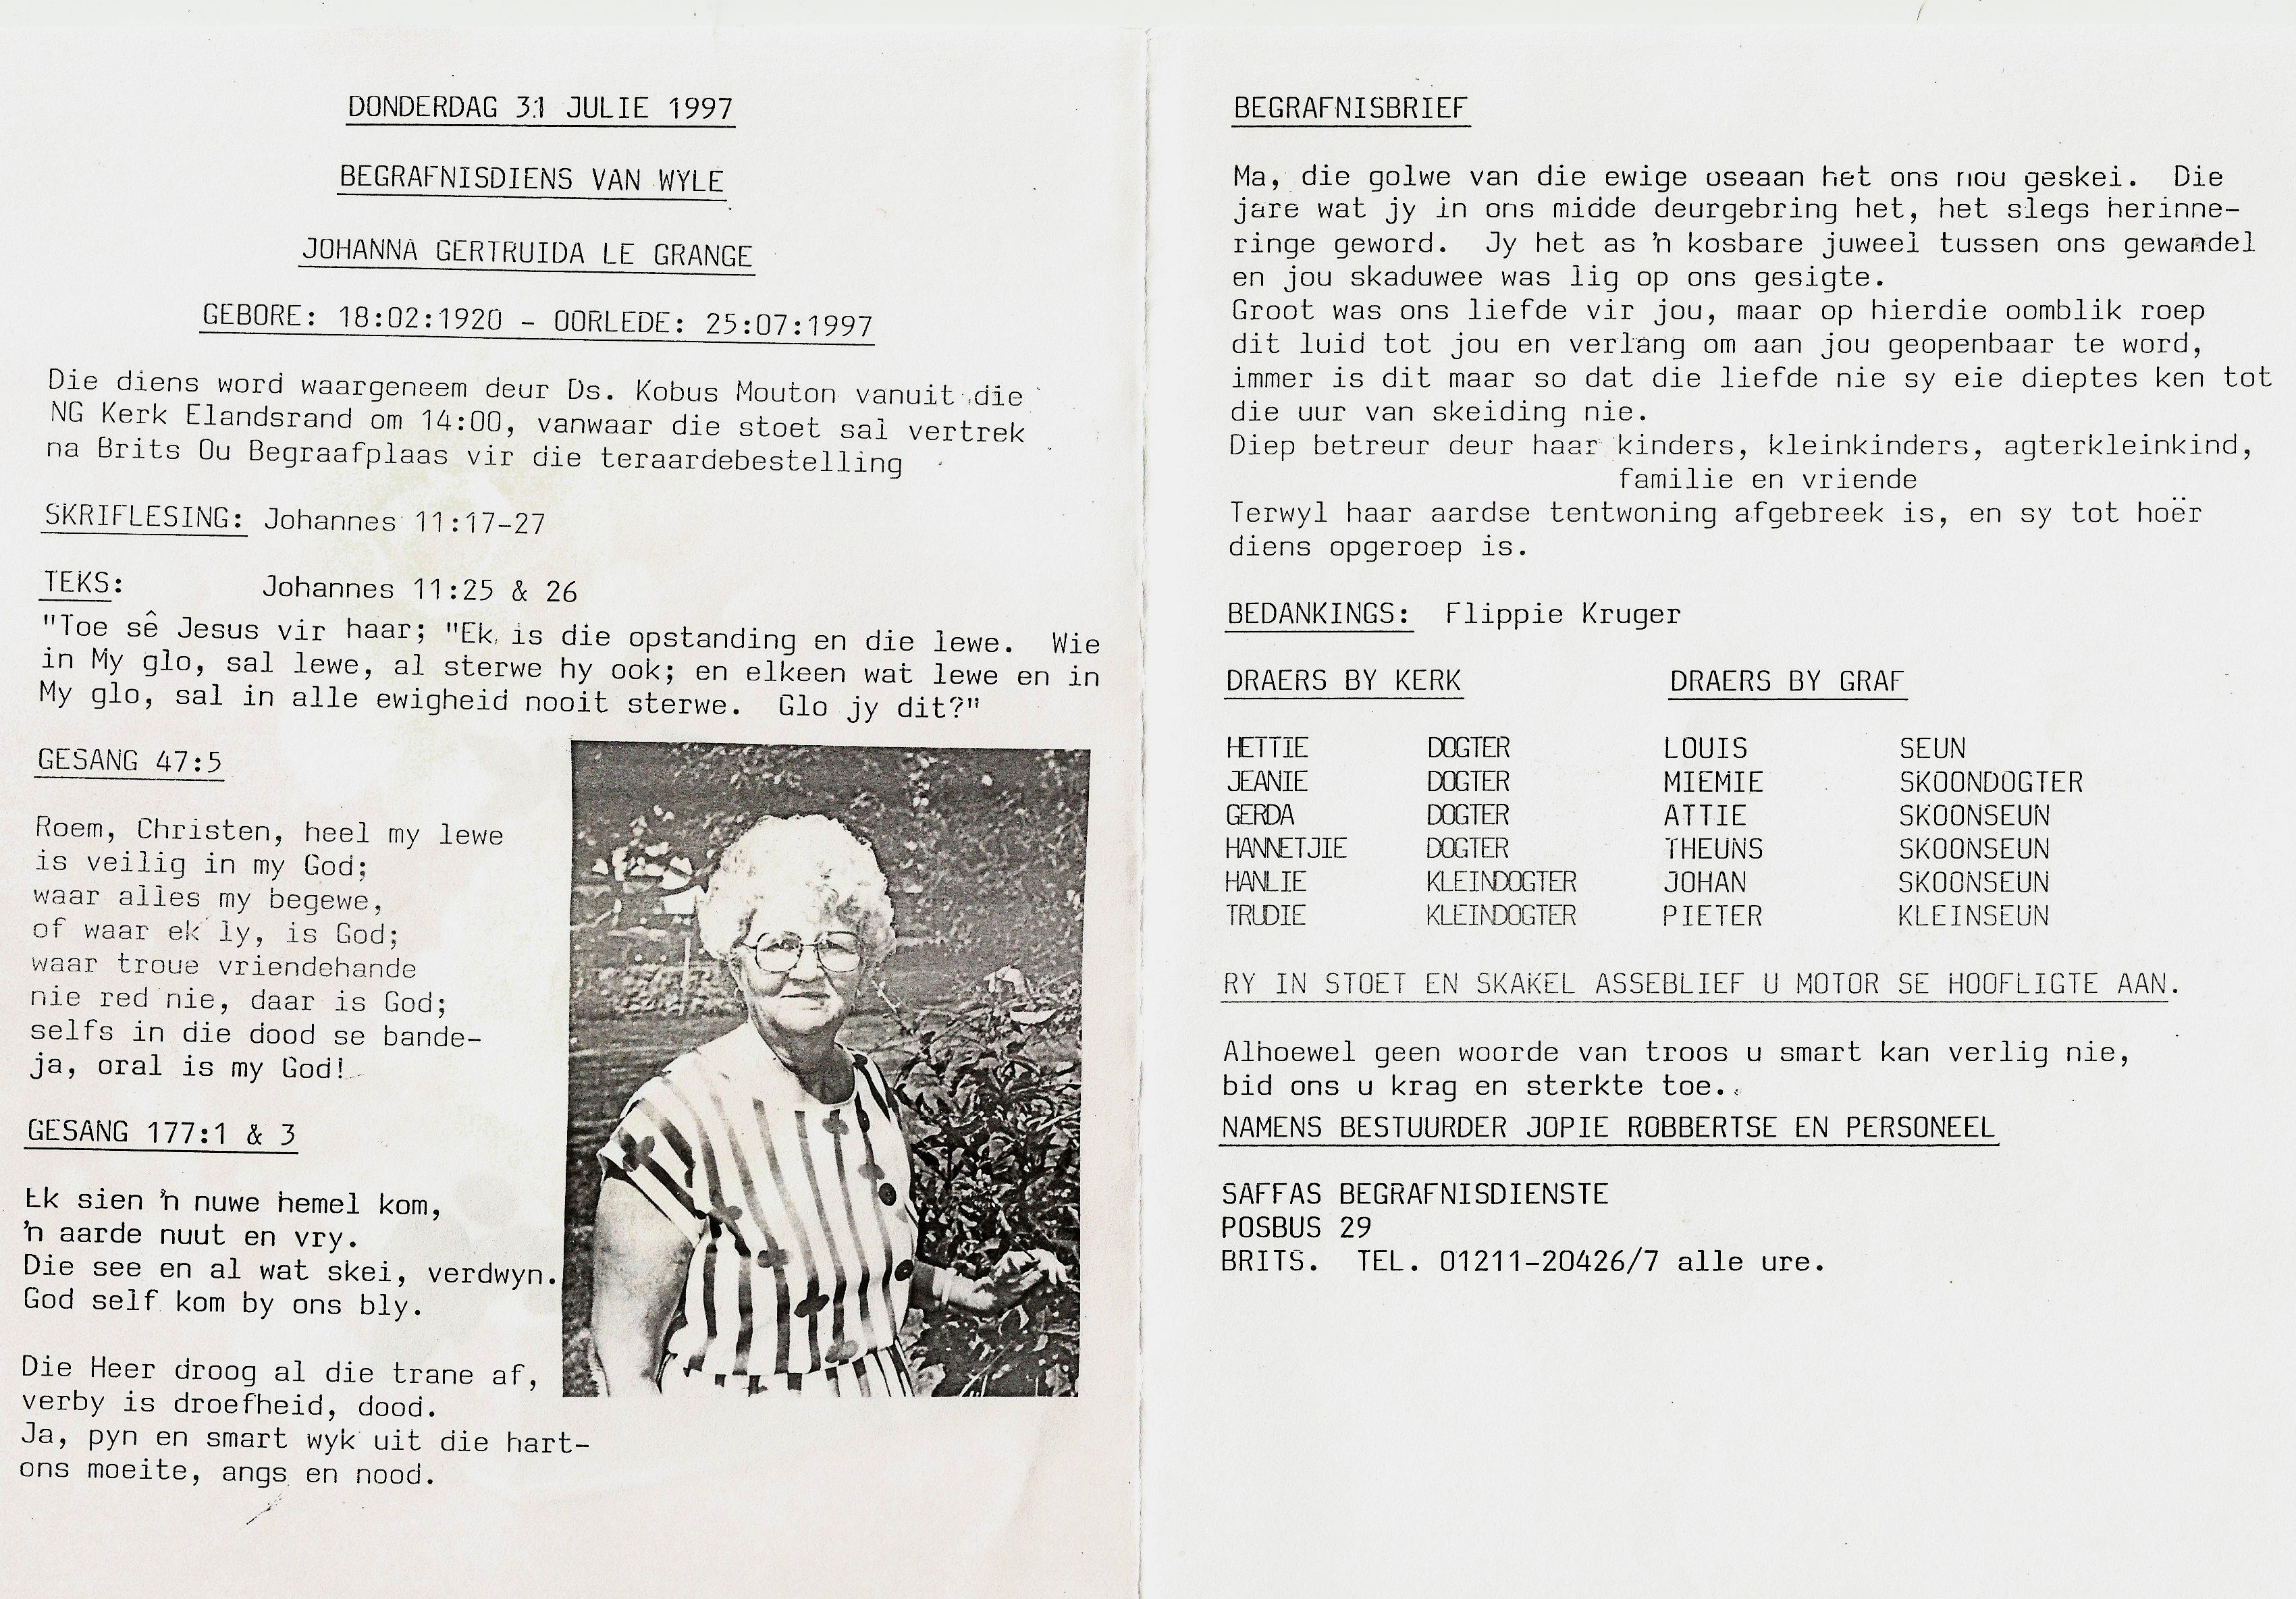 DONDERDAG 31 JULIE 1997
BEGRAFNISDIENS VAN WYLE
JOHANNA GERTRUIDA LE GRANGE
GEBORE: 18:02:1920 - OORLEDE: 25:07:1997
Die diens word waargeneem deur Ds. Kobus Mouton vanuit die
NG Kerk Elandsrand om 14:00, vanwaar die stoet sal vertrek
na Brits Ou Begraafplaas vir die teraardebestelling
SKRIFLESING: Johannes 11:17-27
TEKS: Johannes 11:25 & 26
"Toe sê Jesus vir haar; "Ek is die opstanding en die lewe. Wie
in My glo, sal lewe, al sterwe hy ook; en elkeen wat lewe en in
My glo, sal in alle ewigheid nooit sterwe. Glo jy dit?"
GESANG 47:5
Roem, Christen, heel my lewe
is veilig in my God;
waar alles my begewe,
of waar ek ly, is God;
waar troue vriendehande
nie red nie, daar is God;
selfs in die dood se bande-
ja, oral is my God!
GESANG 177:1 & 3
Ek sien 'n nuwe hemel kom,
'n aarde nuut en vry.
Die see en al wat skei, verdwyn.
God self kom by ons bly.
Die Heer droog al die trane af,
verby is droefheid, dood.
Ja, pyn en smart wyk uit die hart-
ons moeite, angs en nood.
BEGRAFNISBRIEF
Ma, die golwe van die ewige oseaan het ons nou geskei. Die
jare wat jy in ons midde deurgebring het, het slegs herinne-
ringe geword. Jy het as 'n kosbare juweel tussen ons gewandel
en jou skaduwee was lig op ons gesigte.
Groot was ons liefde vir jou, maar op hierdie oomblik roep
dit luid tot jou en verlang om aan jou geopenbaar te word,
immer is dit maar so dat die liefde nie sy eie dieptes ken tot
die uur van skeiding nie.
Diep betreur deur haar kinders, kleinkinders, agterkleinkind,
familie en vriende
Terwyl haar aardse tentwoning afgebreek is, en sy tot hoër
diens opgeroep is.
BEDANKINGS: Flippie Kruger
DRAERS BY KERK DRAERS BY GRAF
HETTIE DOGTER LOUIS SEUN
JEANIE DOGTER MIEMIE SKOONDOGTER
GERDA DOGTER ATTIE SKOONSEUN
HANNETJIE DOGTER THEUNS SKOONSEUN
HANLIE KLEINDOGTER JOHAN SKOONSEUN
TRUDIE KLEINDOGTER PIETER KLEINSEUN
RY IN STOET EN SKAKEL ASSEBLIEF U MOTOR SE HOOFLIGTE AAN.
Alhoewel geen woorde van troos u smart kan verlig nie,
bid ons u krag en sterkte toe.
NAMENS BESTUURDER JOPIE ROBBERTSE EN PERSONEEL
SAFFAS BEGRAFNISDIENSTE
POSBUS 29
BRITS. TEL. 01211-20426/7 alle ure.